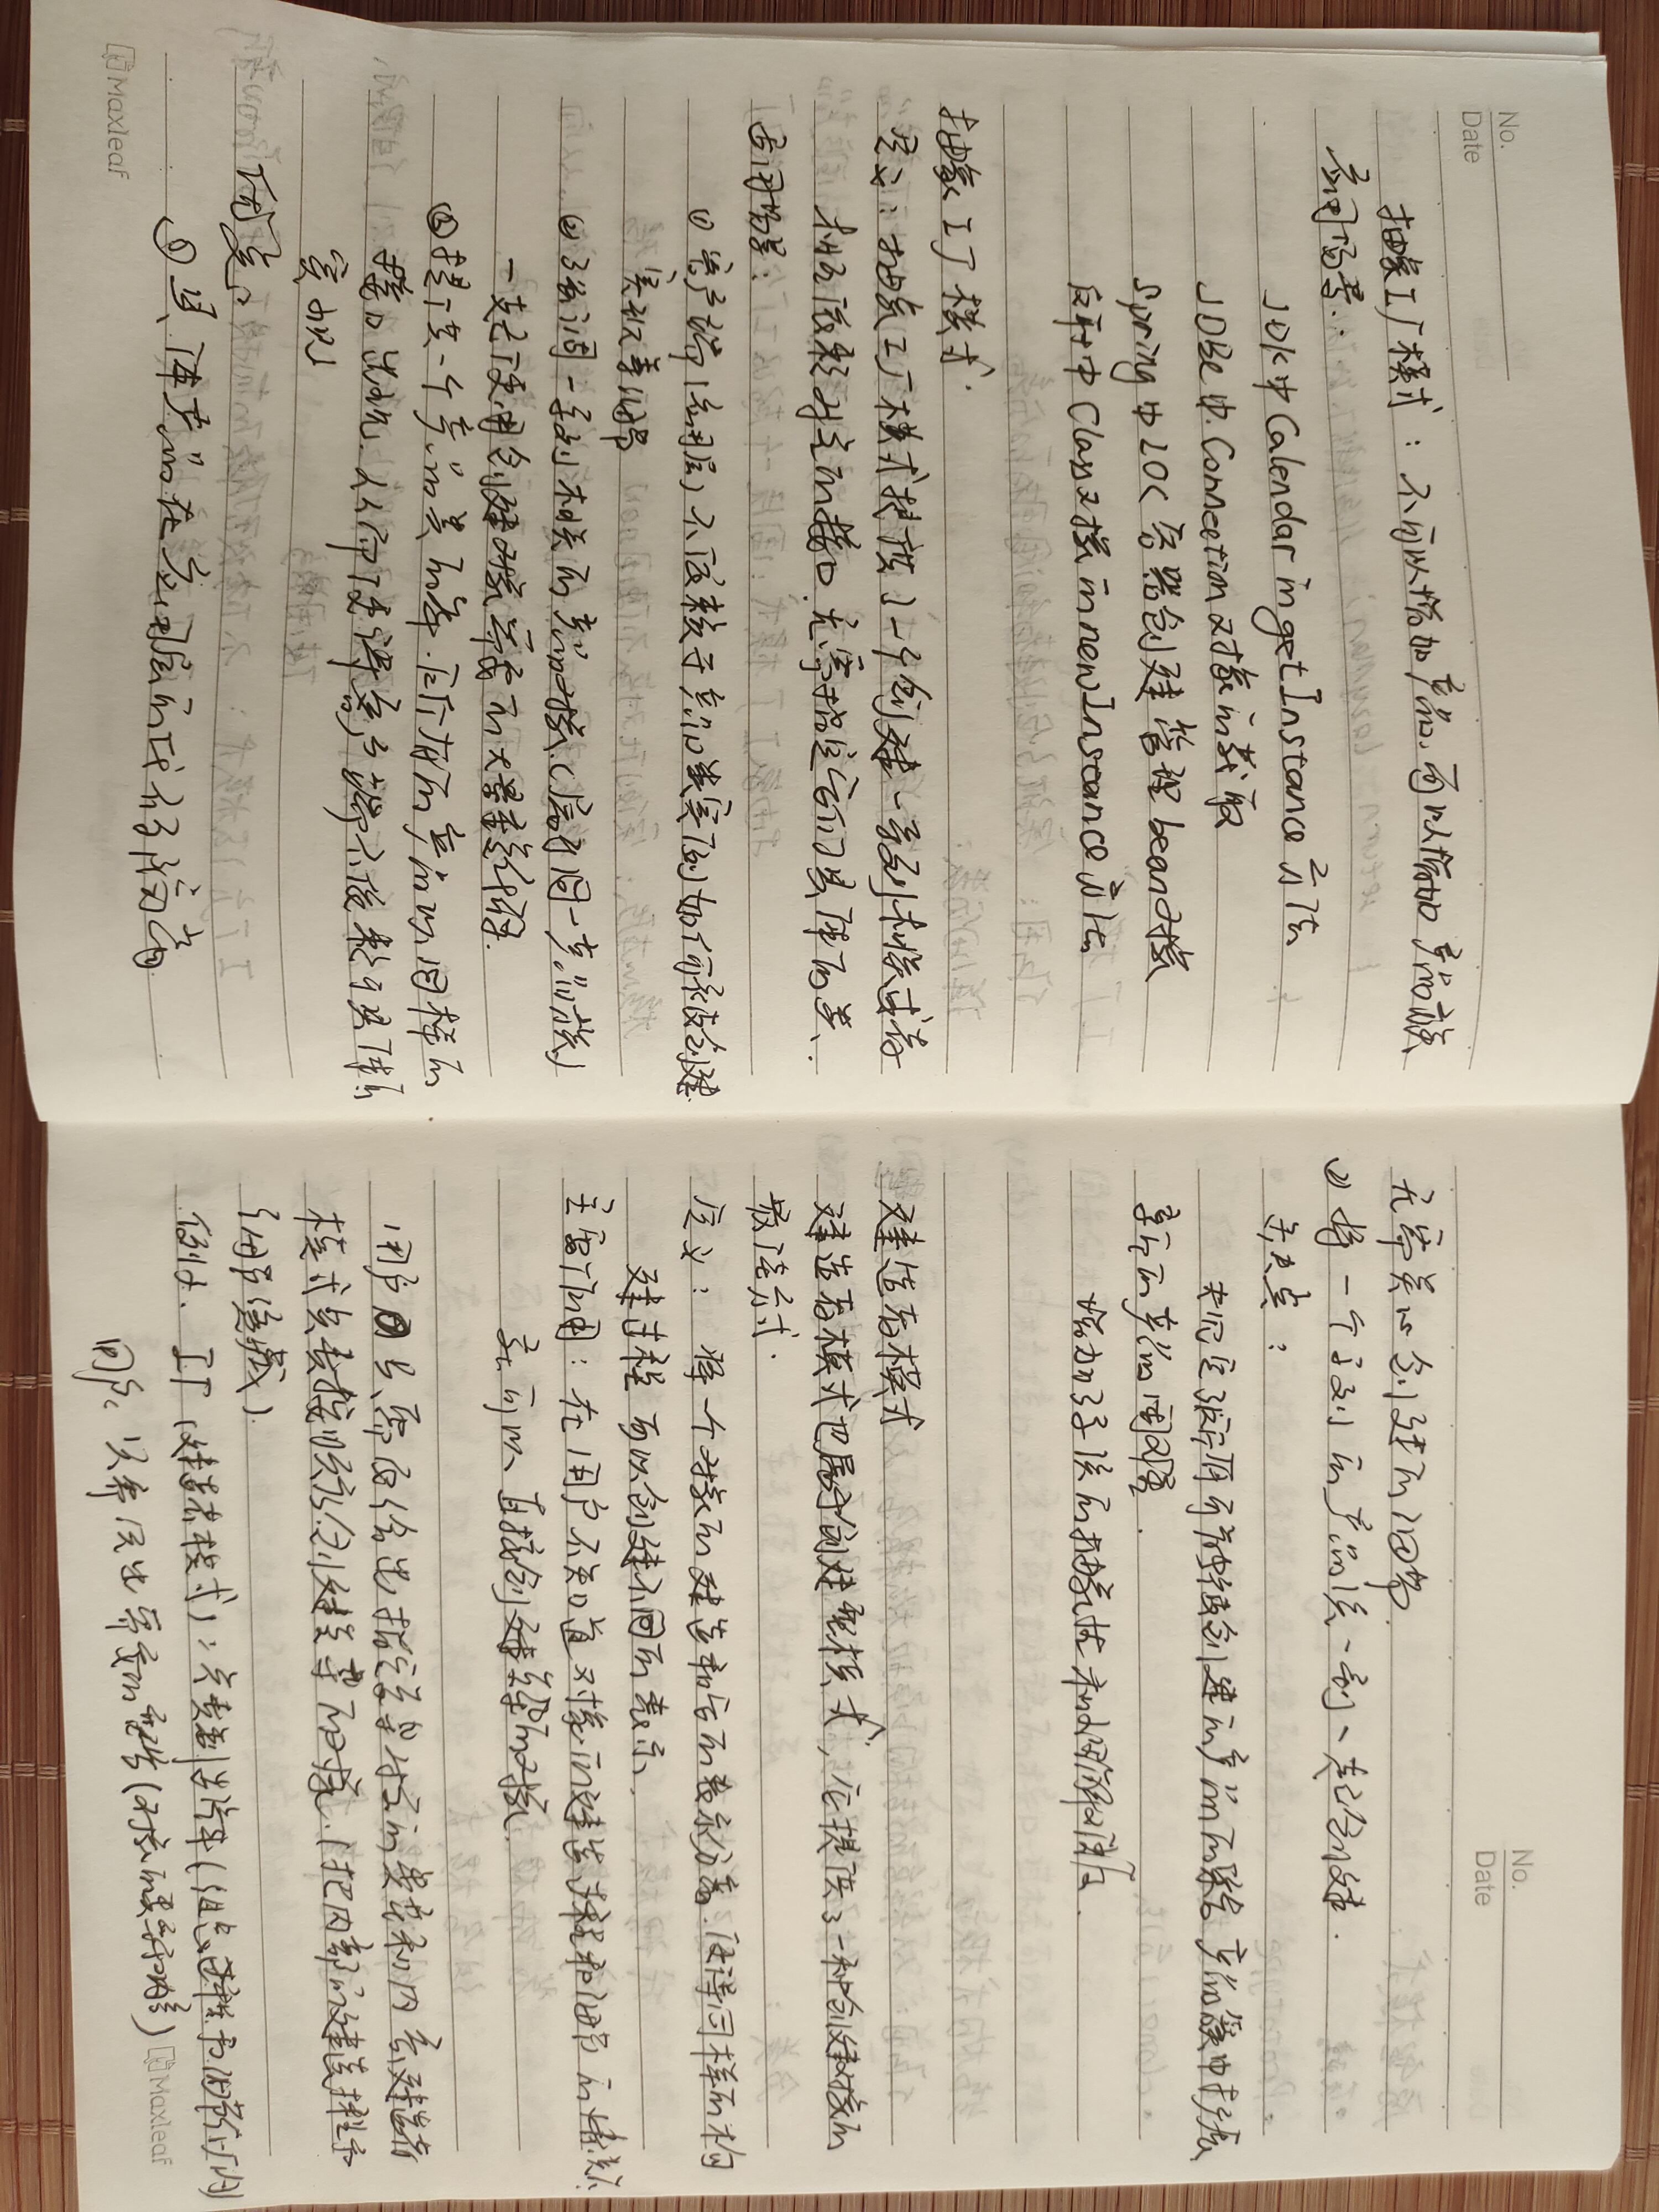 No.
Date
抽象工厂模式：不可以增加产品，可以增加产品族
应用场景：
JDK中Calendar的getInstance方法
JDBC中Connection对象的获取
Spring中IOC容器创建管理bean对象
反射中Class对象的newInstance方法
抽象工厂模式
定义：抽象工厂模式提供了一个创建一系列相关或者
相互依赖对象的接口，无需指定它们具体的类、
适用场景：
① 客户端（应用层）不依赖于产品类实例如何被创建
实现等细节
② 强调一系列相关的产品对象（属于同一产品族）
一起使用创建对象需要的大量重复代码
③ 提供一个产品类的库，所有的产品以同样的
接口出现，从而使得客户端不依赖于具体的
实现
优点
① 具体产品在应用层的代码隔离
Maxleaf
No.
Date
无需关心创建的细节
② 将一个系列的产品族统一到一起创建.
缺点：
规定了所有可能被创建的产品，产品族中扩展
新的产品困难.
增加了系统的抽象性和理解难度.
建造者模式
建造者模式也属于创建型模式，它提供了一种创建对象的
最佳方式.
定义：将一个对象的建造和它的表示分离，使得同样的构
建过程可以创建不同的表示.
主要作用：在用户不知道对象的建造过程和细节的情况
下就可以直接创建复杂的对象.
用户只需要给出指定复杂对象的类型和内容，建造者
模式负责按顺序创建复杂的对象.（把内部的建造过程和
细节隐藏）
例子、工厂（建造者模式）：负责制造汽车（组装过程和细节在厂内）
Maxleaf